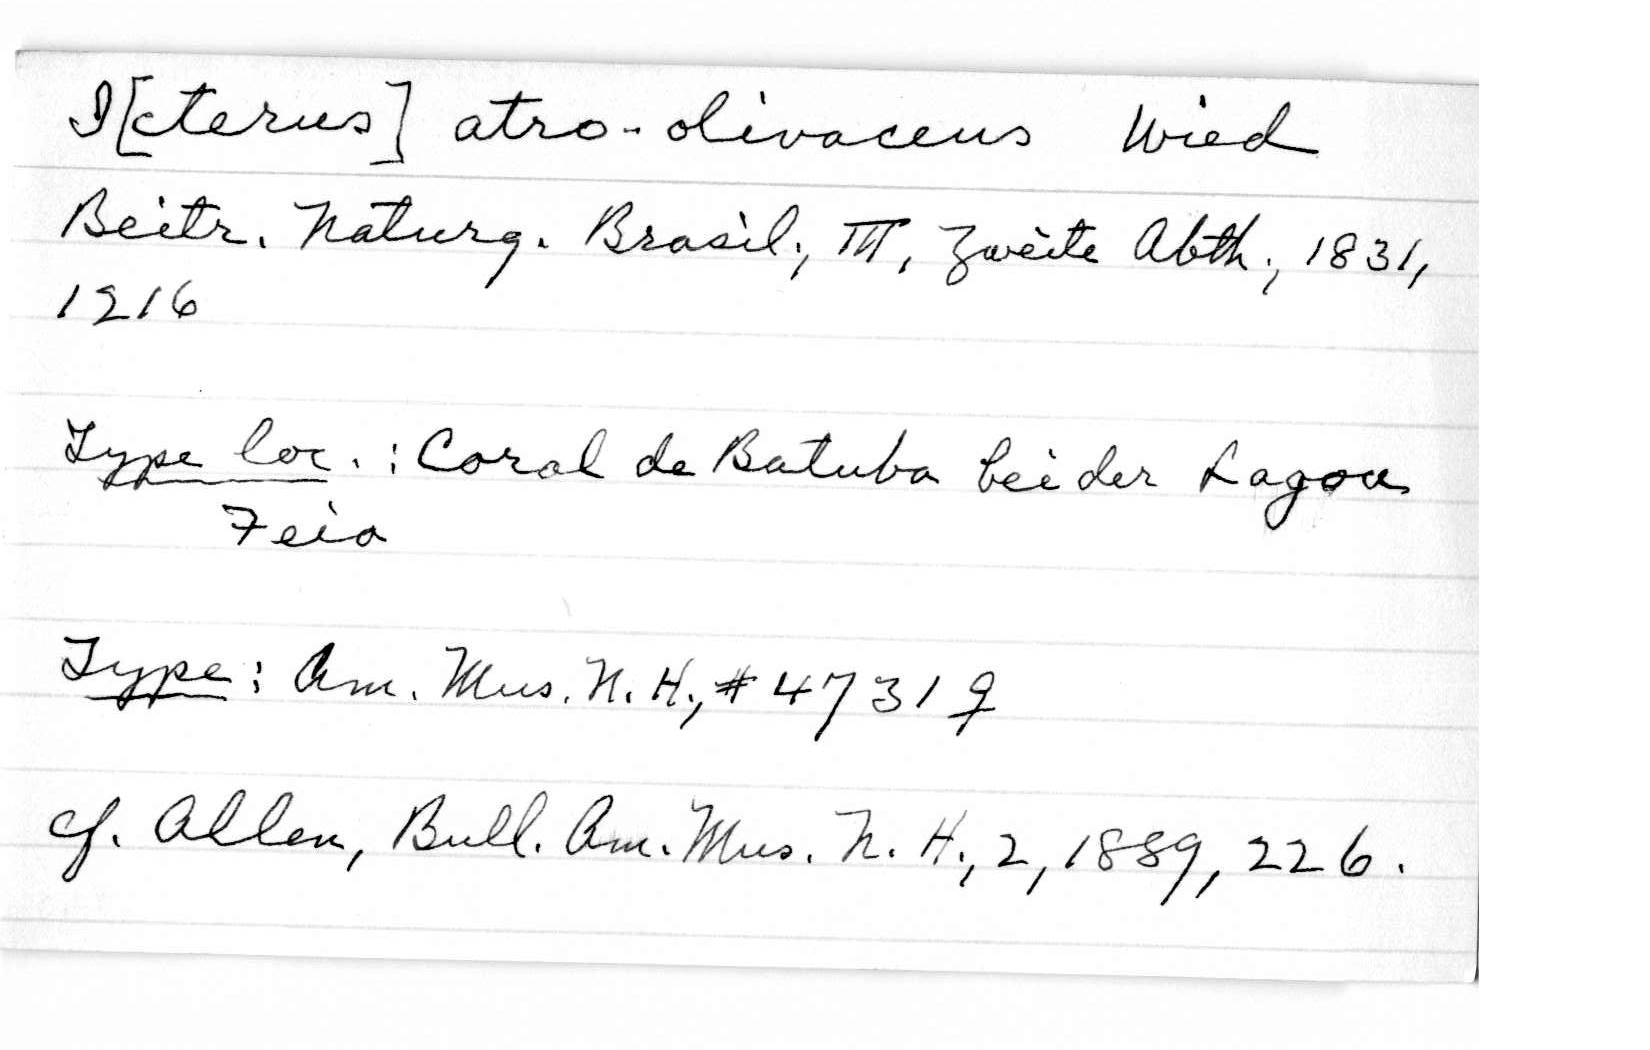 I[cterus] atro-olivaceus Wied
Beitr. Naturg. Brasil., III, Zweite Abth., 1831,
1216
Type loc.: Coral de Batuba bei der Lagoa
Feia
Type: Am. Mus. N. H., #4731 ♀
cf. Allen, Bull. Am. Mus. N. H., 2, 1889, 226.